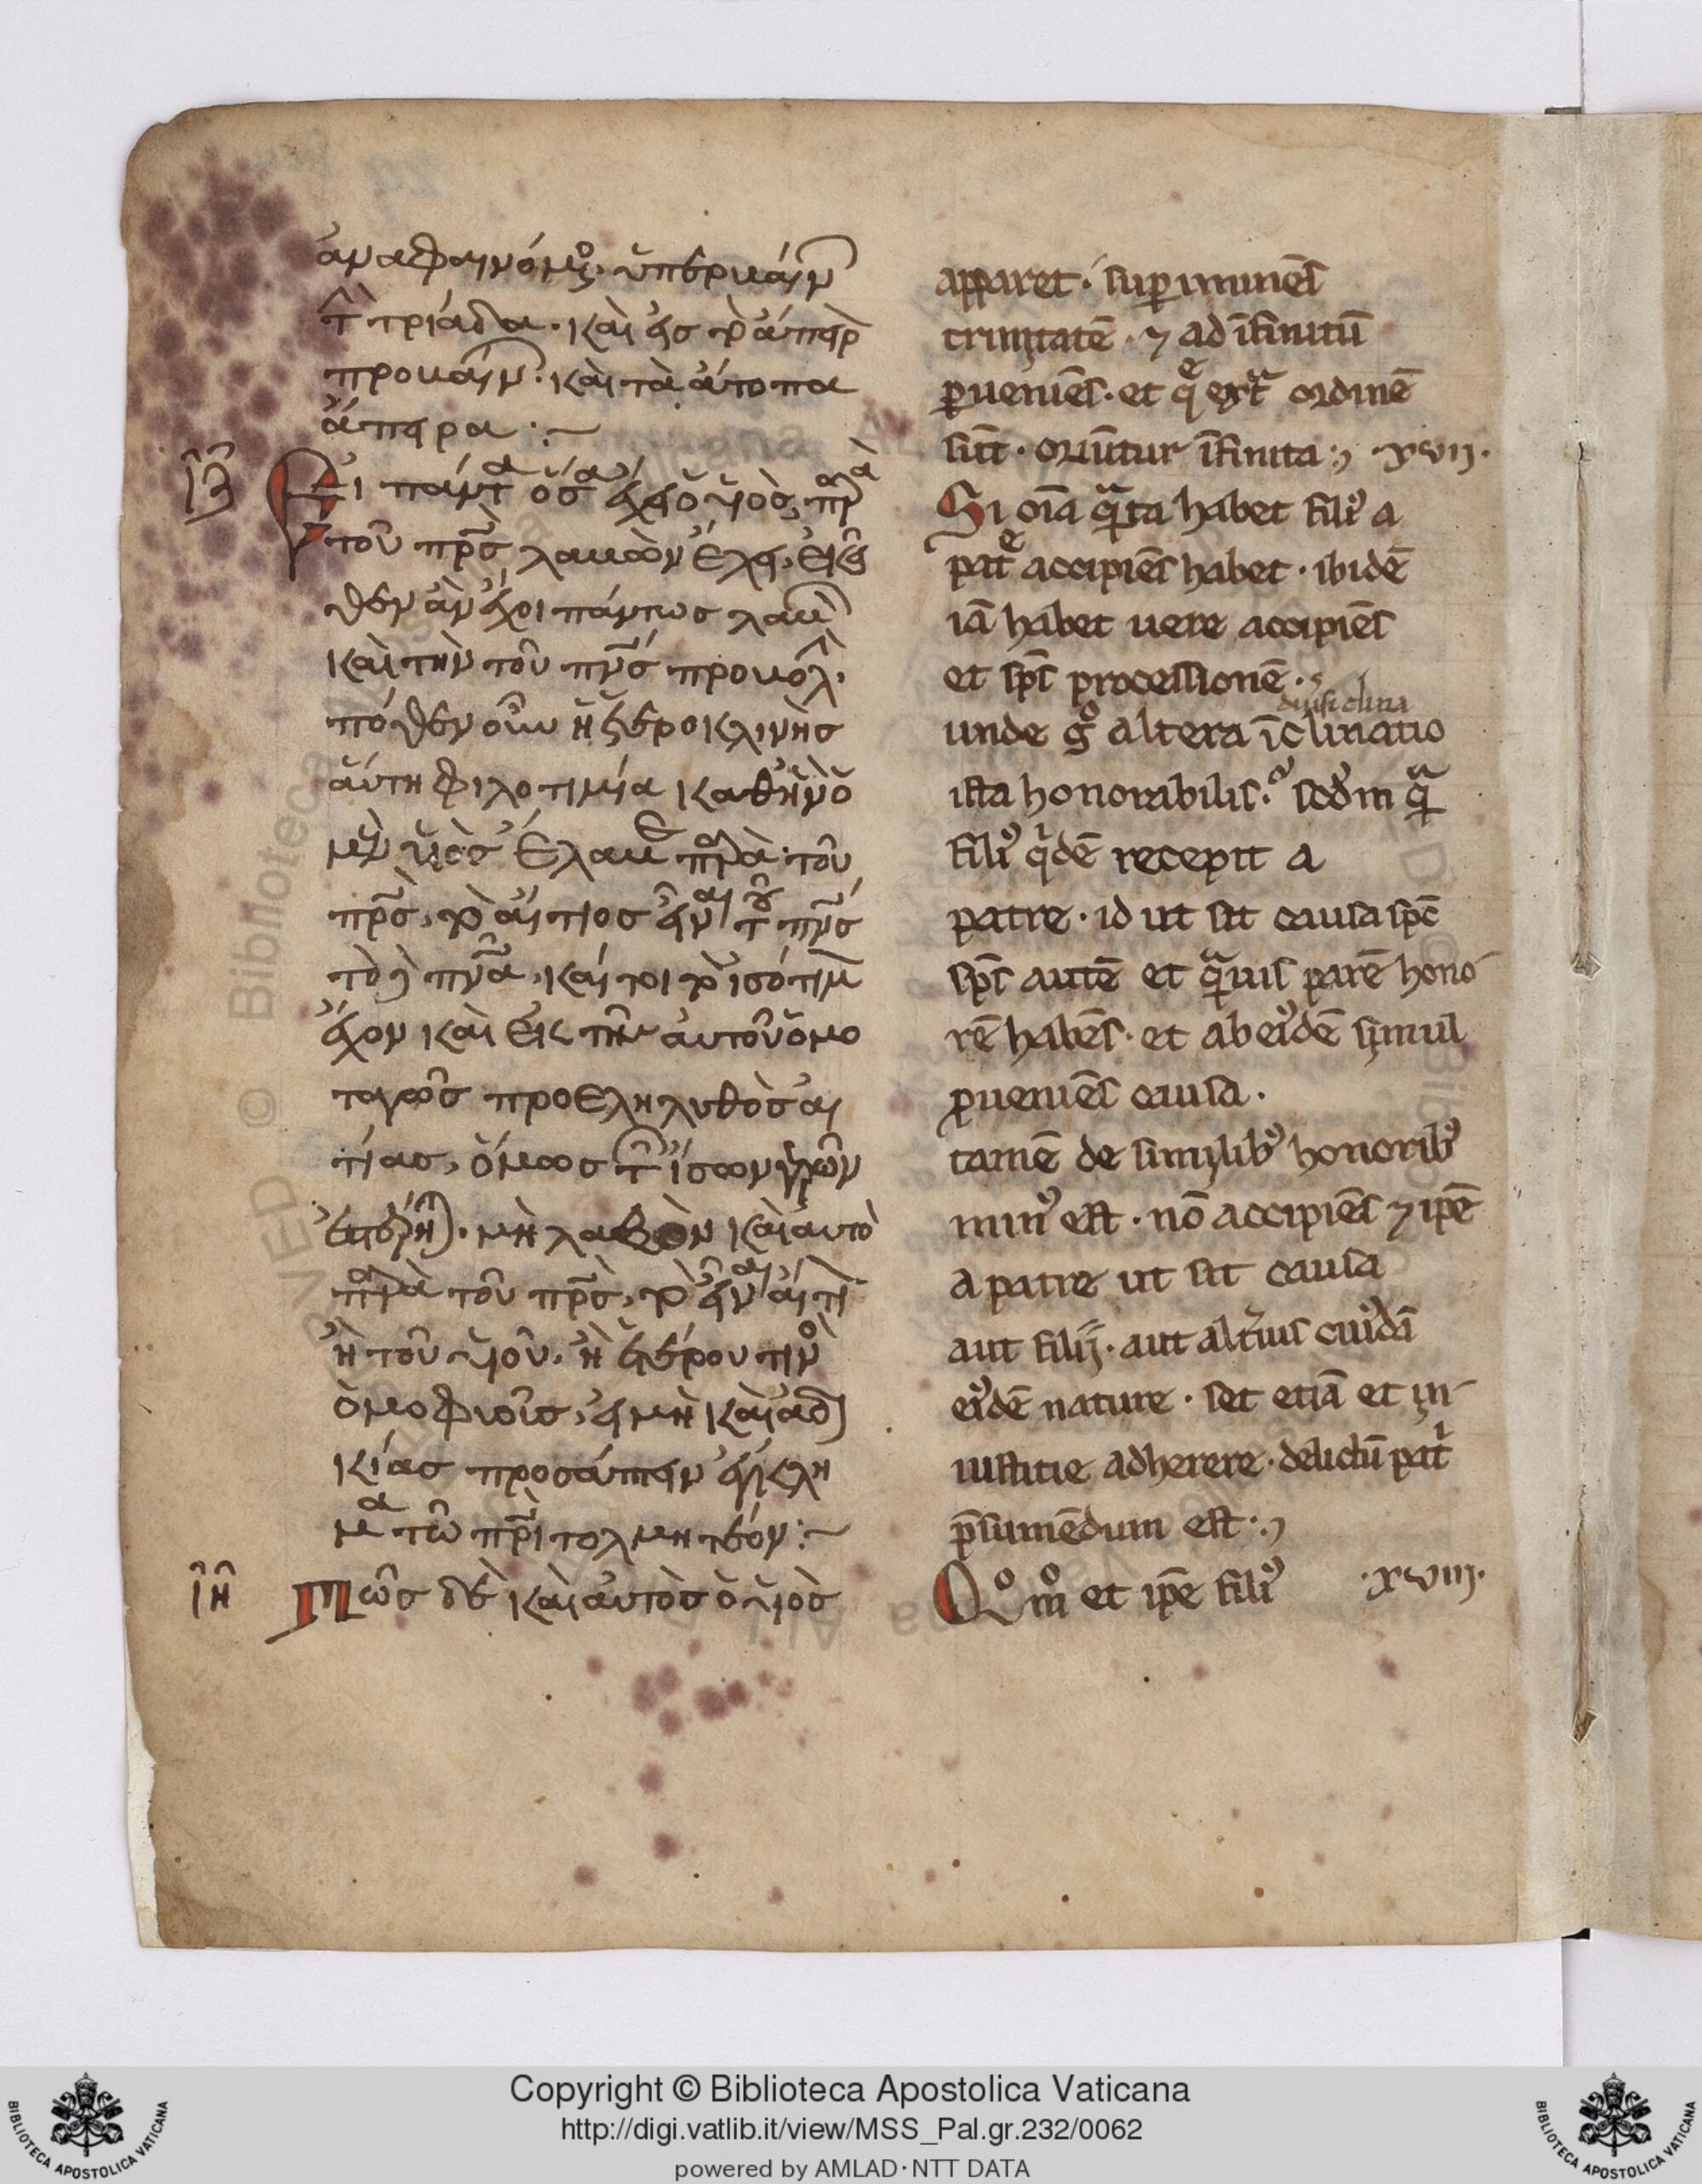 ἀναφαινόμενος· ὑπερβαίνων
τὴν τριάδα· καὶ εἰς τὸ ἄπειρον
προβαίνων· καὶ τὰ ἄτοπα
ἄπειρα :~
ΙΖ Εἰ πάντα ὅσα ἔχει ὁ υἱὸς, παρὰ
τοῦ πρς λαβὼν ἔχει, ἐκεῖ
θεν ἂν ἔχοι πάντως λαβὼν
καὶ τὴν τοῦ πνς προβολήν·
πόθεν οὖν ἡ ἑτεροκλινὴς
αὕτη φιλοτιμία καθ' ἣν ὁ
μὲν υἱὸς ἔλαβε παρὰ τοῦ
πρς, τὸ αἴτιος εἶναι τοῦ πνς
τὸ δὲ πνα, καίτοι τὸ ἰσότιμον
ἔχον καὶ ἐκ τῆς αὐτοῦ ὁμο
ταγῶς προεληλυθὸς αἰ
τίας, ὅμως τῶν ἴσων γερῶν
ἐστέρηται· μὴ λαβὸν καὶ αὐτὸ
παρὰ τοῦ πρς, τὸ εἶναι αἴτιον
ἢ τοῦ υἱοῦ, ἢ ἑτέρου τινὸς
ὁμοφυοῦς, εἰ μὴ καὶ ἀδι
κίας προσάπτειν ἔγκλη
μα τῷ πρι τολμητέον :~
ΙΗ Πῶς δὲ καὶ αὐτὸς ὁ υἱὸς
apparet· sup iminẽs
trinitatẽ · ⁊ ad ĩfinitũ
pueniẽs· et q̃ ext᷑ ordinẽ
sũt · oriũtur ĩfinita :, ·xvij·
Si oĩa q̃ta habet fili᷒ a
pat᷑e accipiẽs habet · ibidẽ
iã habet uere accipiẽs
et sp̃s processionẽ ·
unde gͦ altera ĩclinatio
ista honorabilis· scd᷒m q̃
fili᷒ q̇dẽ recepit a
patre · id ut sit causa sp̃c
sp̃s autẽ et q̃uis parẽ hono
rẽ habẽs· et ab ei᷒dẽ simul
pueniẽs causa ·
tamẽ de similib᷒ honorib᷒
min᷒ est · nõ accipiẽs ⁊ ip̃e
a patre ut sit causa
aut filij· aut alt᷑ius cui᷒dã
ei᷒dẽ nature · set etiã et in
iustitie adherere · delictũ pat᷑i
p̃sumẽdum est ·:,
Qͦmͦ et ip̃e fili᷒ ·xviij·
Copyright © Biblioteca Apostolica Vaticana
http://digi.vatlib.it/view/MSS_Pal.gr.232/0062
powered by AMLAD·NTT DATA
BIBLIOTECA APOSTOLICA VATICANA
BIBLIOTECA APOSTOLICA VATICANA